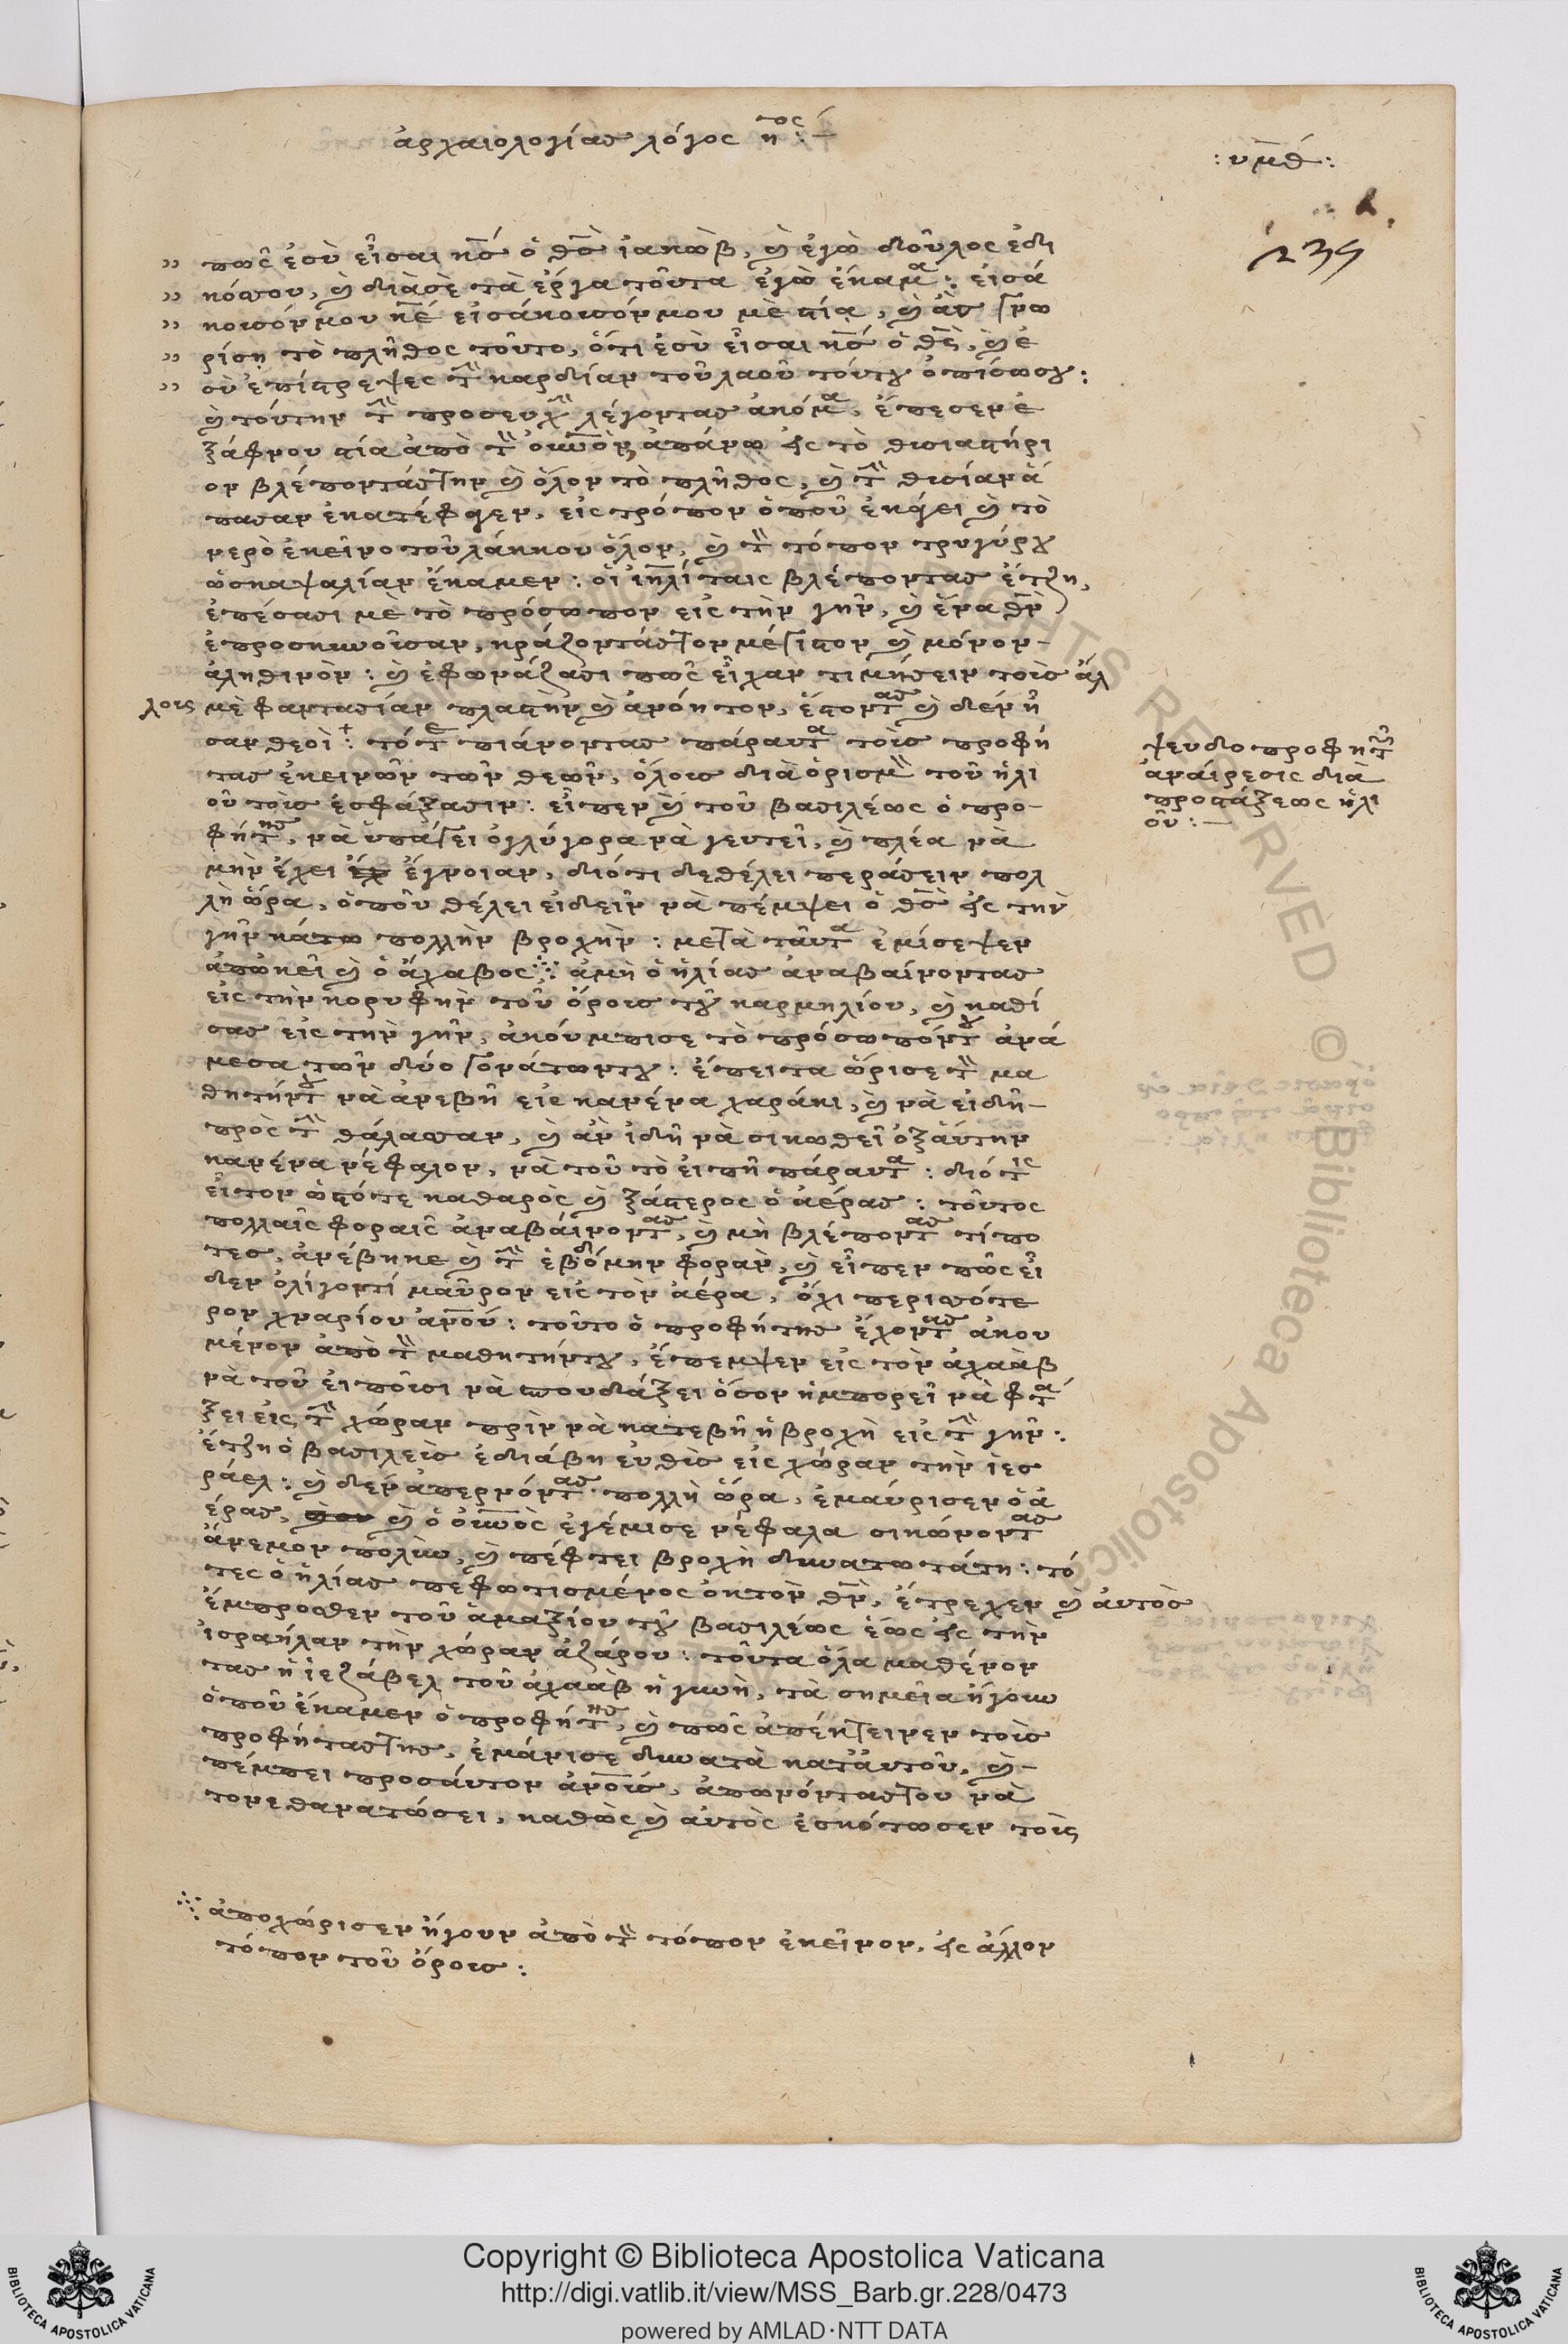 ἀρχαιολογίας λόγος ητος :—
: υμθ :
239
πῶς ἐσὺ εἶσαι κς ὁ θς ἰακὼβ, καὶ ἐγὼ δοῦλος ἐδι
κόσου, καὶ διὰσὲ τὰ ἔργα τοῦτα ἐγὼ ἔκαμα : εἰσά
κουσόν μου κε εἰσάκουσόν μου μὲ στία, καὶ ἂς γνω
ρίσῃ τὸ πλῆθος τοῦτο, ὅτι ἐσὺ εἶσαι κς ὁ θς, καὶ ἐ
σὺ ἐπίστρεψες τὴν καρδίαν τοῦ λαοῦ τούτου ὀπίσωσου :
καὶ τούτην τὴν προσευχὴν λέγοντας ἀκόμα, ἔπεσεν ἐ
ξάφνου στία ἀπὸ τὸν οὐνὸν ἀπάνω εἰς τὸ θυσιαστήρι
ον βλέποντάς την καὶ ὅλον τὸ πλῆθὸς, καὶ τὴν θυσίαν ἅ
πασαν ἐκατέφαγεν, εἰς τρόπον ὁποῦ ἐκάγει καὶ τὸ
νερὸ ἐκεῖνο τοῦ λάκκου ὅλον, καὶ τὸν τόπον τρυγύρου
ὡσκαψαλίαν ἔκαμεν : οἱ ἰηλίταις βλέποντας ἔτζη,
ἐπέσασι μὲ τὸ πρόσωπον εἰς τὴν γῆν, καὶ ἕνα θν
ἐπροσκυνοῦσαν, κράζοντάς τον μέγιστον καὶ μόνον
ἀληθινὸν : καὶ ἐφωνάζασι πῶς εἶχαν τιμήσειν τοὺς ἄλ
λους μὲ φαντασίαν πλαστὴν καὶ ἀνόητον, ἔστοντας καὶ δὲν ἦ
σαν θεοὶ : τότε πιάνοντας πάραυτα τοὺς προφή
τας ἐκεινῶν τῶν θεῶν, ὅλους διὰ ὁρισμὸν τοῦ ἡλι
οῦ τοὺς ἐσφάξασιν : εἶπεν καὶ τοῦ βασιλέως ὁ προ
φήτης, νὰ ὑπάγει ὀγλύγορα νὰ γευτεῖ, καὶ πλέα νὰ
μὴν ἔχει ἔγνοιαν, διότι δεθέλει περάσειν πολ
λὴ ὥρα, ὁποῦ θέλει εἰδεῖν νὰ πέμψει ὁ θς εἰς τὴν
γῆν κάτω πολλὴν βροχὴν : μετὰ ταῦτα ἐμίσεψεν
ἀπὠκεῖ καὶ ὁ ἄχαβος ⁘ ἀμὴ ὁ ἡλίας ἀναβαίνοντας
εἰς τὴν κορυφὴν τοῦ ὄρους τοῦ καρμηλίου, καὶ καθί
σας εἰς τὴν γῆν, ἀκούμπισε τὸ πρόσωπόντου ἀνά
μεσα τῶν δύο γονάτωντου : ἔπειτα ὥρισε τὸν μα
θητήντου νὰ ἀνεβῆ εἰς κανένα χαράκι, καὶ νὰ εἰδῆ
πρὸς τὴν θάλασσαν, καὶ ἂν ἰδῆ νὰ σικωθεῖ ὀξαύτην
κανένα νέφαλον, νὰ τοῦ τὸ εἰπῆ πάραυτα : διότις
εἶτον ὡστότε καθαρὸς καὶ ξάστερος ὁ ἀέρας : τοῦτος
πολλαῖς φοραῖς ἀναβαίνοντας, καὶ μὴ βλέποντας τίπο
τες, ἀνέβηκε καὶ τὴν ἑβδόμην φορὰν, καὶ εἶπεν πῶς εἶ
δεν ὀλίγοντί μαῦρον εἰς τὸν ἀέρα, ὄχι περισσότε
ρον χναρίου ἀνου : τοῦτο ὁ προφήτης ἔχοντας ἀκου
μένον ἀπὸ τὸν μαθητήντου, ἔπεμψεν εἰς τὸν ἀχαὰβ
νὰ τοῦ εἰποῦσι νὰ σπουδάξει ὅσον ἠμπορεῖ νὰ φτά
ξει εἰς τὴν χώραν πρὶν νὰ κατεβῆ ἡ βροχὴ εἰς τὴν γῆν :
ἔτζη ὁ βασιλεὺς ἐδιάβη εὐθὺς εἰς χώραν τὴν ἰεσ
ράελ : καὶ δὲν ἀπερνόντας πολλὴ ὥρα, ἐμαύρισεν ὁ ἀ
έρας, καὶ ὁ οὐνὸς ἐγέμισε νέφαλα σικώνοντας
ἄνεμον πολὺν, καὶ πέφτει βροχὴ δυνατωτάτη : τό
τες ὁ ἡλίας πεφωτισμένος ὀκτὸν θν, ἔτρεχεν καὶ αὐτὸς
ἔμπροσθεν τοῦ ἁμαξίου τοῦ βασιλέως ἕως εἰς τὴν
ἰσραήλαν τὴν χώραν ἀζάρου : τοῦτα ὅλα μαθένον
τας ἡ ἰεζάβελ τοῦ ἀχαὰβ ἡ γυνὴ, τὰ σημεῖα ἤγουν
ὁποῦ ἔκαμεν ὁ προφήτης, καὶ πῶς ἀπέκτεινεν τοὺς
προφήτας της, ἐμάνισε δυνατὰ κατ' αὐτοῦ, καὶ
πέμπει προσαύτον ἀνους, ἀπωνόντας του νὰ
τονε θανατώσει, καθὼς καὶ αὐτὸς ἐσκότωσεν τοὺς
ψευδοπροφητῶν
ἀναίρεσις διὰ
προστάξεως ἡλι
οῦ : —
⁘ ἀποχώρισεν ἤγουν ἀπὸ τὸν τόπον ἐκεῖνον, εἰς ἄλλον
τόπον τοῦ ὄρους :
RIGHTS RESERVED © Biblioteca Apostolica
Copyright © Biblioteca Apostolica Vaticana
http://digi.vatlib.it/view/MSS_Barb.gr.228/0473
powered by AMLAD·NTT DATA
BIBLIOTECA APOSTOLICA VATICANA
BIBLIOTECA APOSTOLICA VATICANA